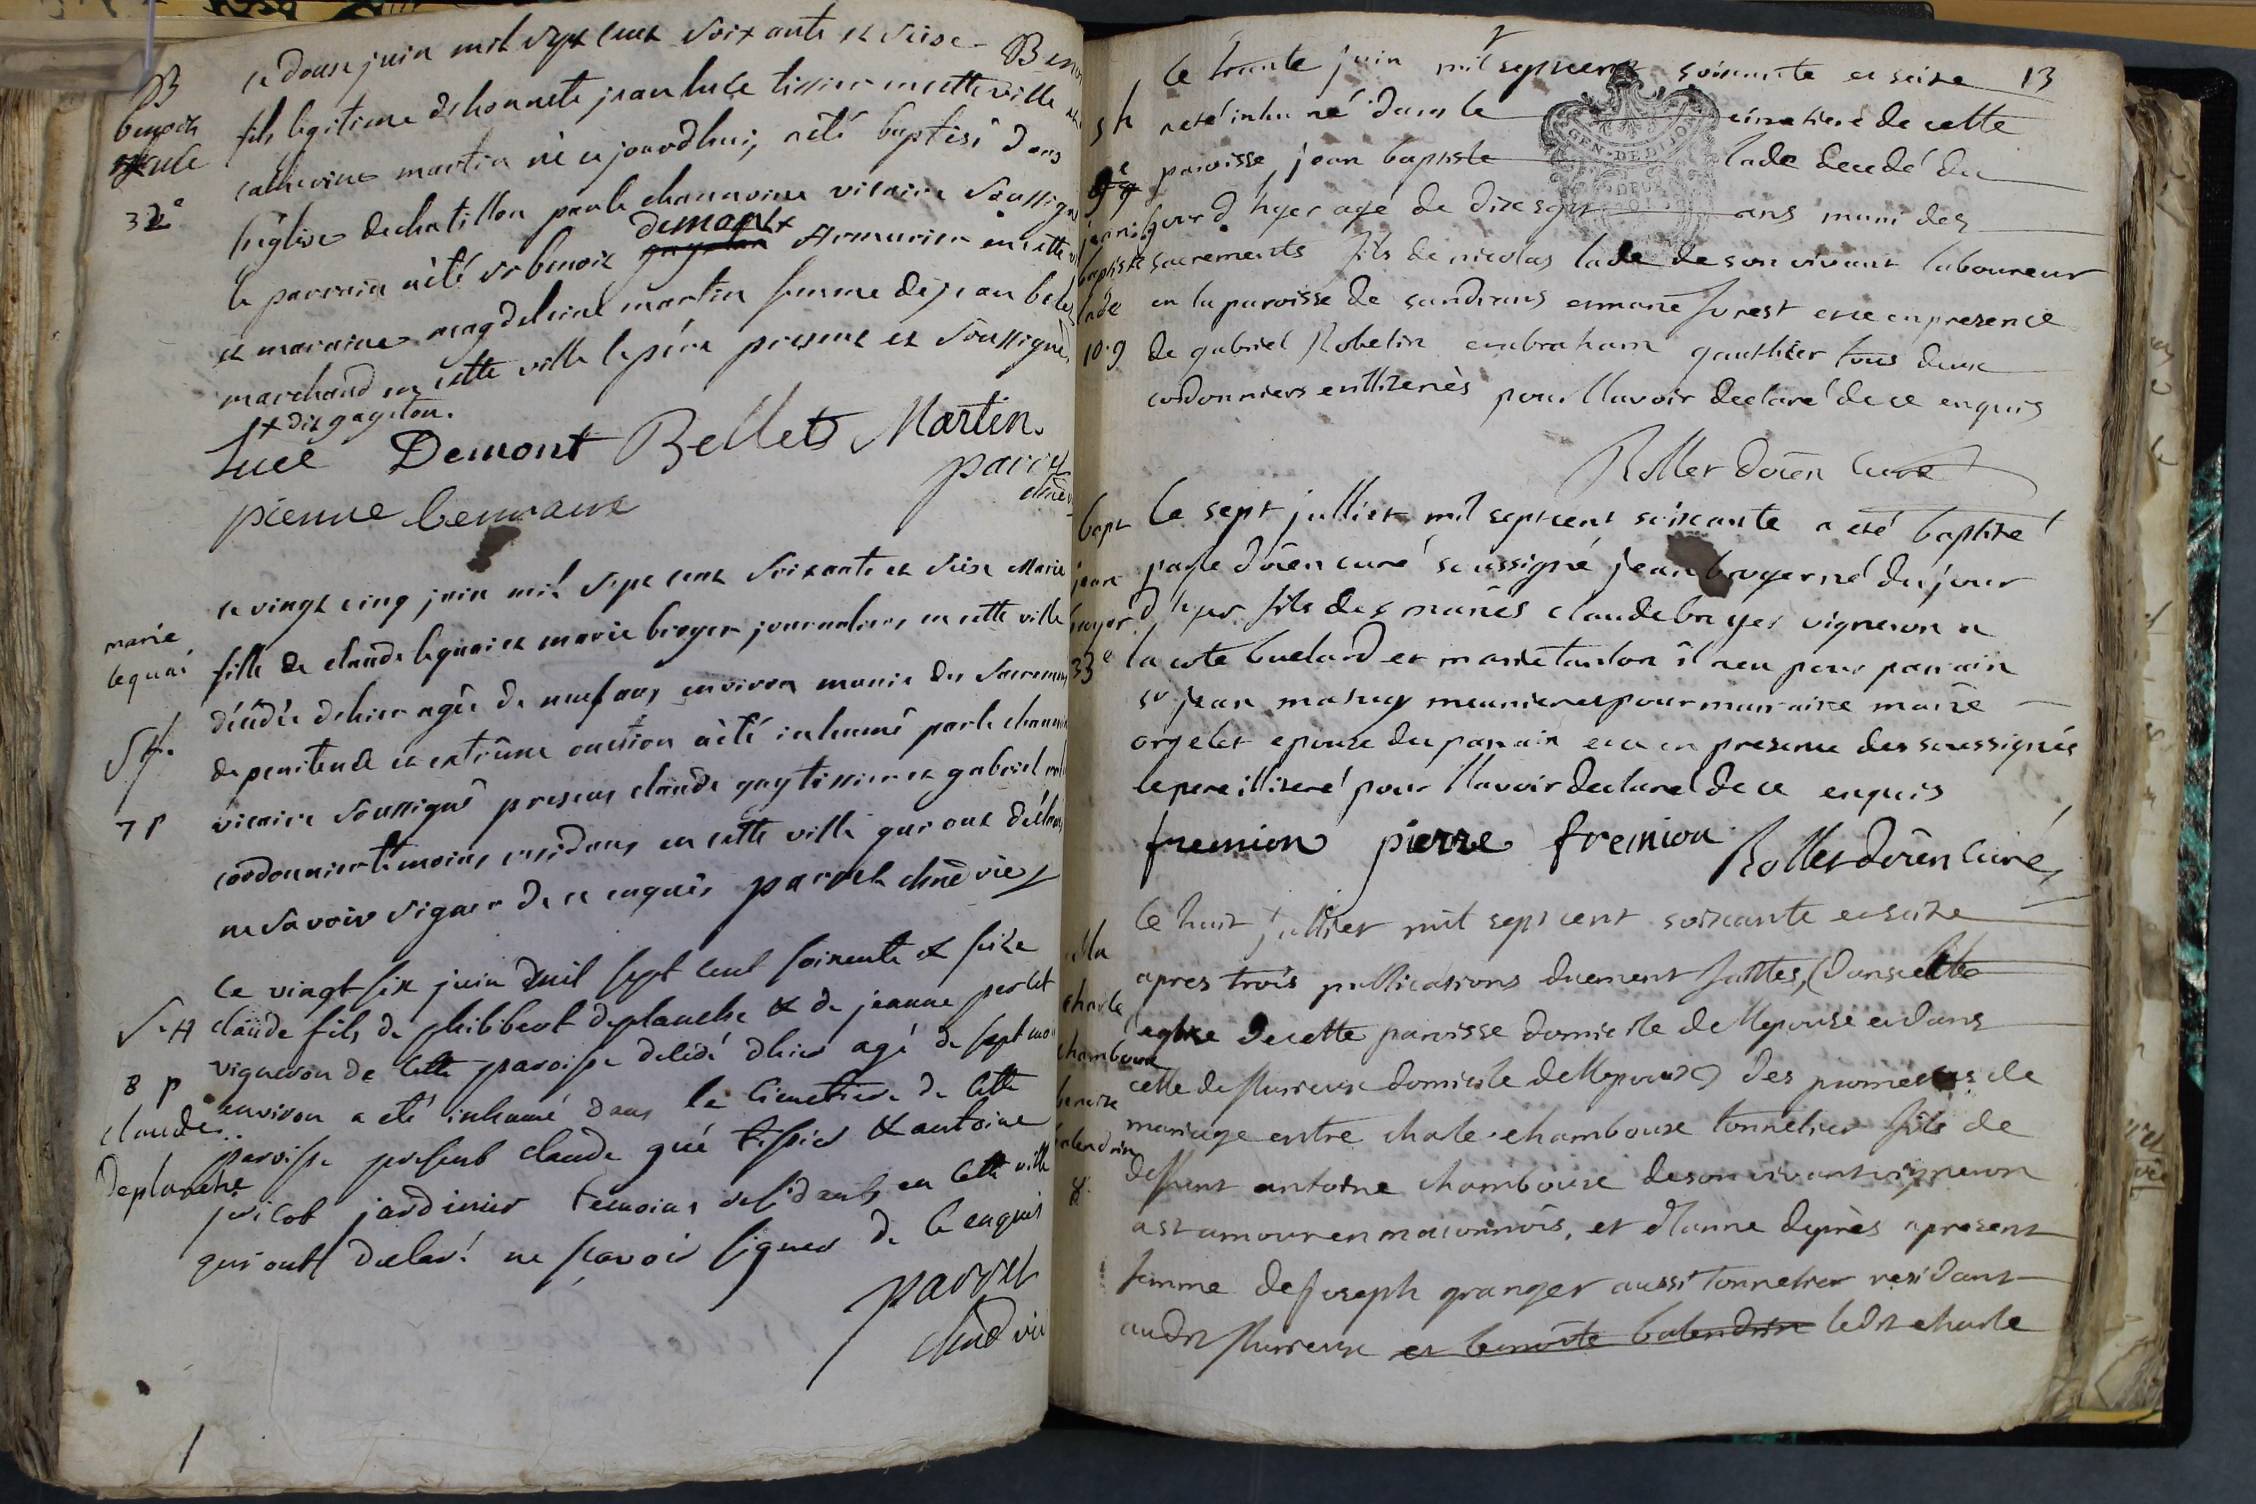 B
benoit
luce
32e
ce douse juin mil sept cent soixante et seise Benoit
fils legitime de honnete jean luce tissier en cette ville et de
catherine martin né ce jourdhui, a été baptisé dans
l'eglise de chatillon par le chanoine vicaire soussigné
le parrain a été sr benoit gageton demont+ armurier en cette v
et maraine magdeleine martin femme de jean belet
marchand en cette ville le pére present et soussigné,
+ dit gageton.
Luce Demont Bellet Martin
pierre
parret
chnē v
marie
lequai
S h.
7 p
ce vingt cinq juin mil sept cent soixante et seise Marie
fille de claude lequai et marie broyer journaliers en cette ville
décédée dehier agée de neuf ans environ munie des sacremens
de penitence et extrême onction a été inhumé par le chanoine
vicaire soussigné presens claude gay tissier et gabriel
cordonnier témoins residans en cette ville qui ont déclaré
ne savoir signer de ce enquis parret chnē vic
S. H
8 p
claude
deplanche
Le vingt six juin mil sept cent soixante et seize
claude fils de philibert deplanche & de jeanne perlet
vigneron de cette paroisse décédé dhier agé de sept mois
environ a eté inhumé dans le cimetiere de cette
paroisse presens claude gué tissier & antoine
jardinier temoins residants en cette ville
qui ont declaré ne scavoir signer de ce enquis
parret
chnē vic
13
s h
jean
baptiste
lade
10. g
le trante juin mil sept cent soixante et seize
a eté inhumé dans le cimetiere de cette
paroisse jean baptiste lade decedé du
jour d'hyer agé de dix sept ans muni des
sacrements fils de nicolas lade de son vivant laboureur
en la paroisse de sandrans et marie forest et ce en presence
de gabriel Robelin et abraham gauthier tous deux
cordonniers enllitérés pour l'lavoir declaré de ce enquis
Rollet doïen curé
bapt
jean
broyer
33e
le sept julliet mil sept cent soixante a eté baptizé
par le doïen curé soussigné jean broyer né du jour
d'hyer fils des mariés claude broyer vigneron a
la cote buelard et marie tardon il a eu pour parrain
sr jean mathey meunier et pour marraine marie
orgelet epouze du parrain et ce en presence des soussignés
le pere illiteré pour l'lavoir declaré de ce enquis
fremion pierre fremion Rollet doïen curé
charle
chambouse
benoite
balendrin
8.
le huit julliet mil sept cent soixante et seize
apres trois publications duement faittes, (dans cette
eglise de cette paroisse domicile de llepouse et dans
celle de flurieux domicile de llepoux) des promesses de
mariage entre chale chambouse tonnelier fils de
deffunt antoine chambouse de son vivant vigneron
a st amour en maconnois, et d'lanne deprès a present
femme de joseph granger aussi tonnelier residant
audit flurieux et benoite balendrin ledit charle
GEN. DE DIJON